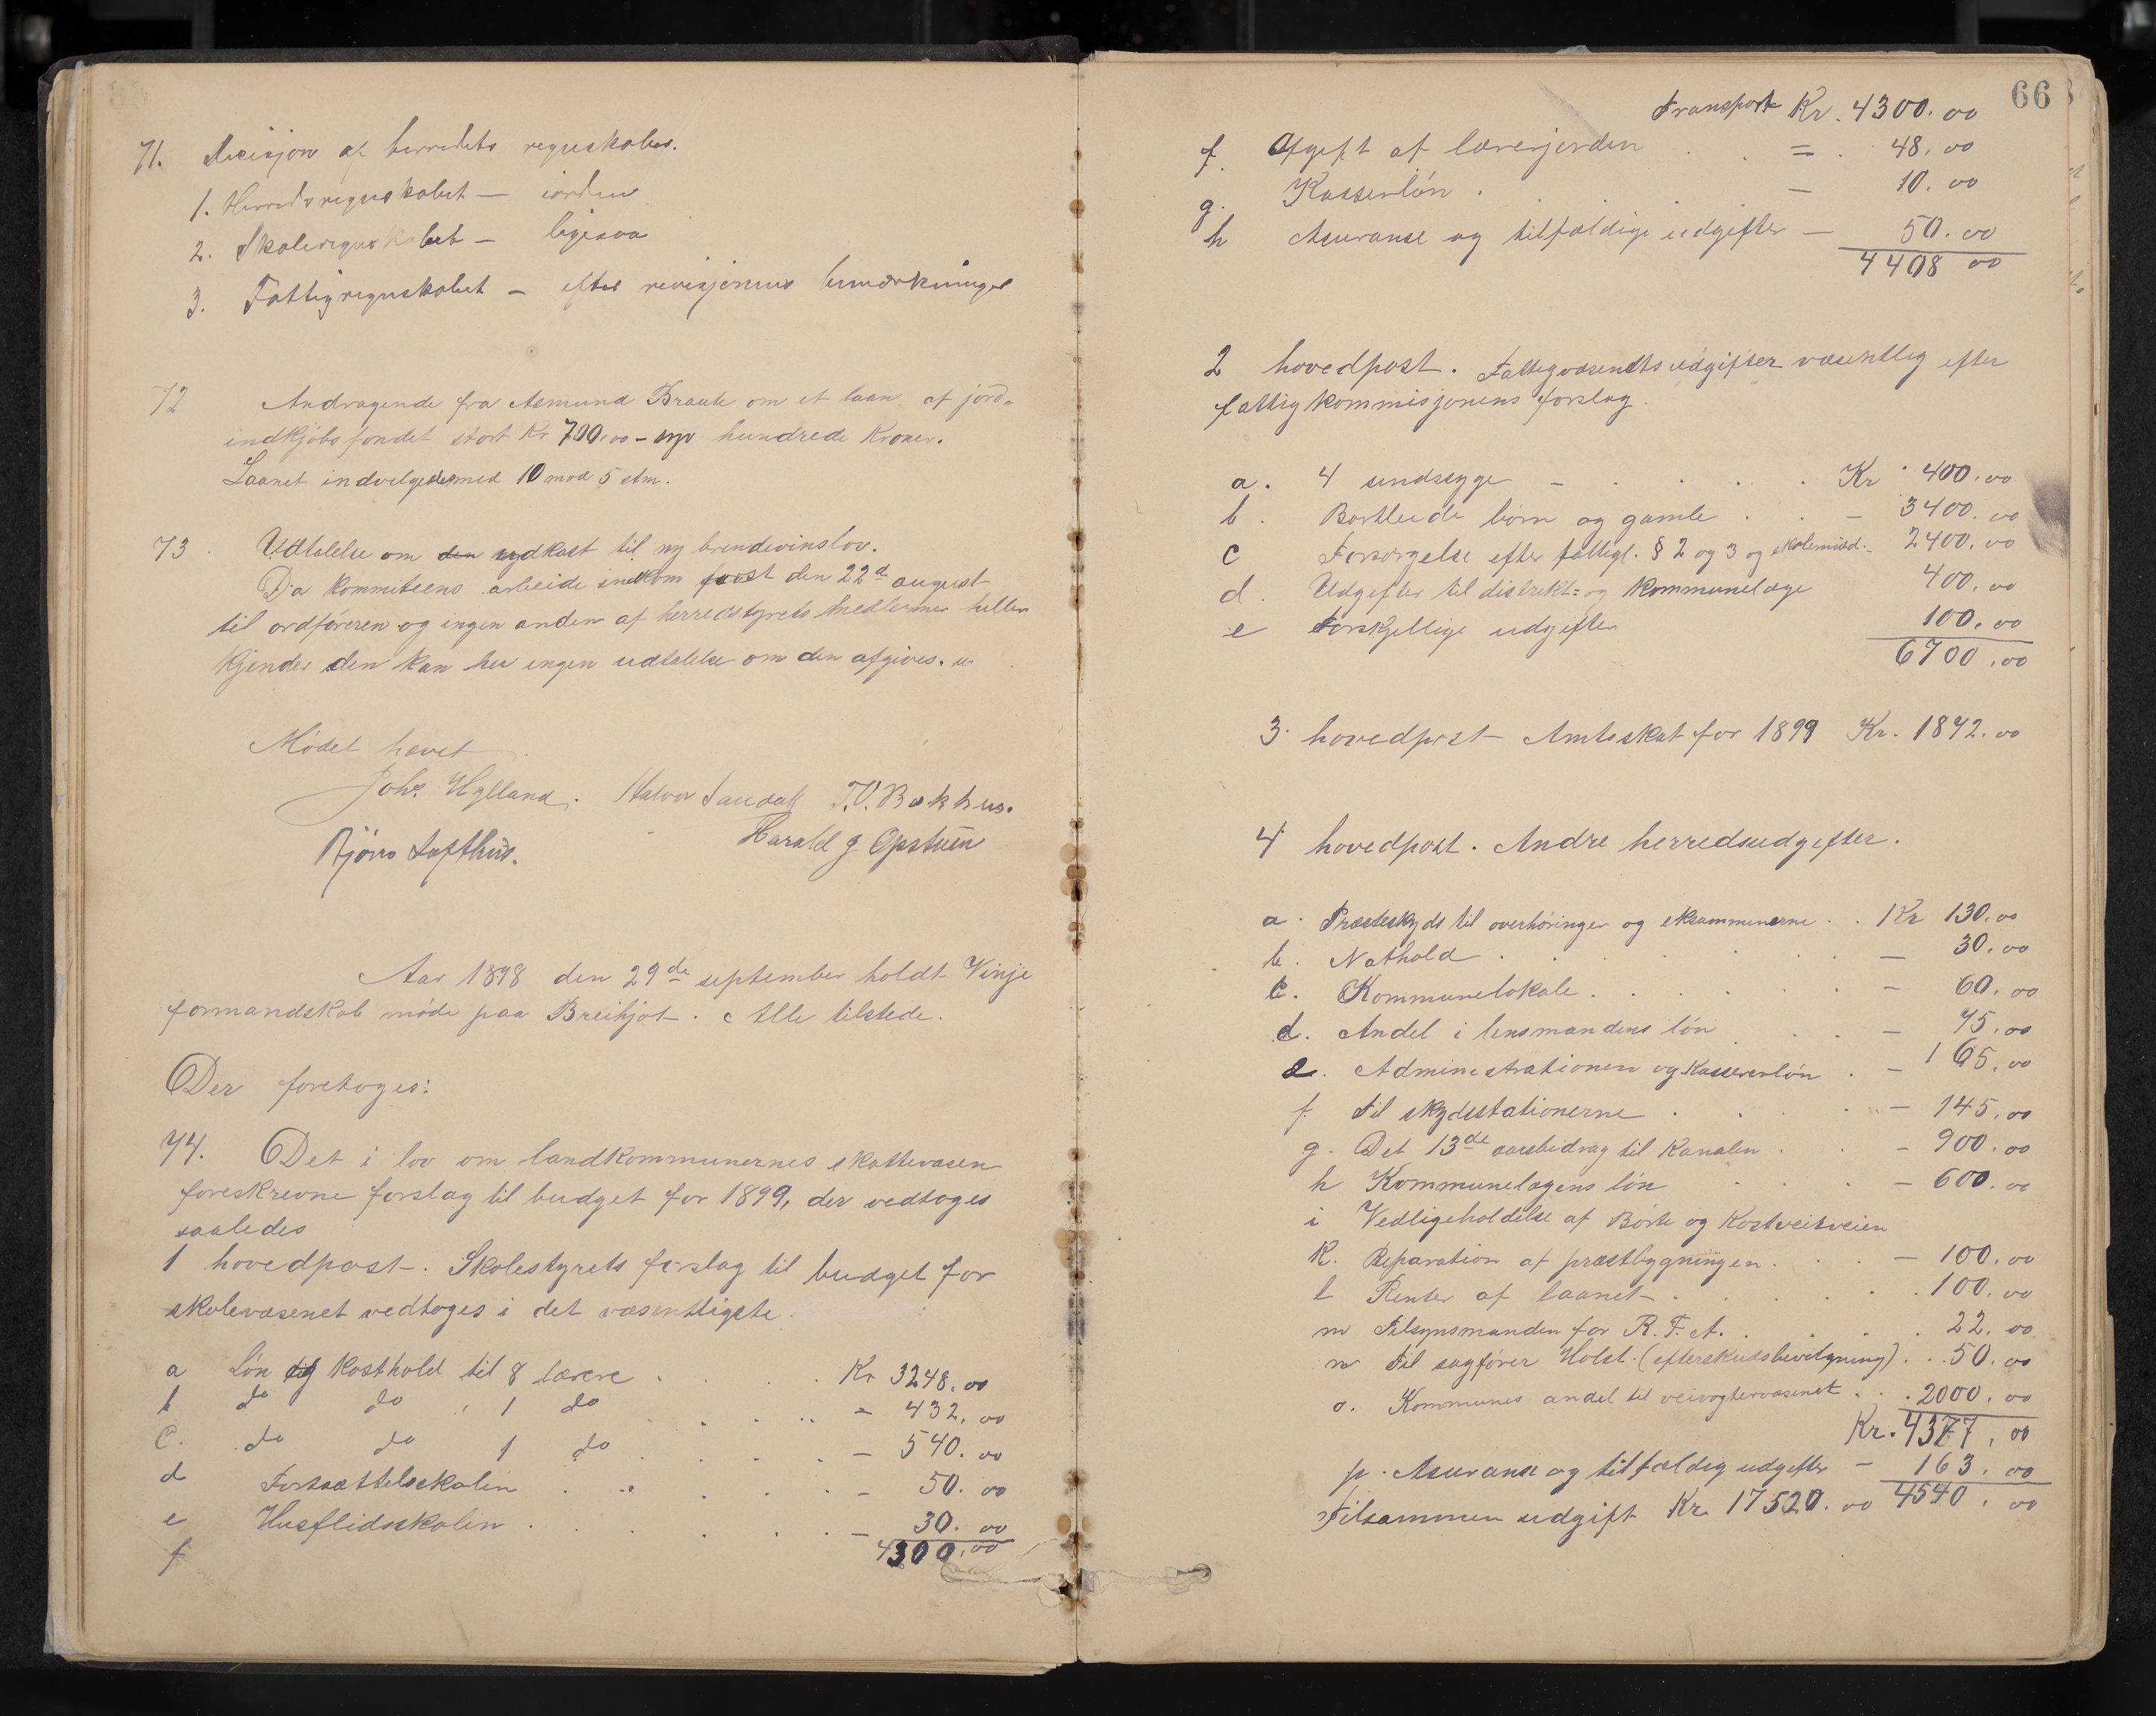 71. Decisjon af herredets regnskaber.
1. Herredsregnskabet — iorden
2. Skoleregnskabet — ligesaa
3. Fattigregnskabet — efter revisjonens bemærkninger
72 Andragende fra Asmund Braate om et laan af jord-
indkjøbsfondet stort Kr 700.00 - syv hundrede Kroner.
Laanet indvilgedes med 10 mod 5 stm.
73. Udtalelse om den udkast til ny brændevinslov.
Da kommiteens arbeide indkom først den 22d august
til ordføreren og ingen anden af herredstyrets medlemmer heller
kjender den kan her ingen udtalelse om den afgives.
Mødet hævet.
Johs. Hylland. Halvor Sandok T.V. Bakhus.
Bjørn Lofthus. Harald G Opstein
Aar 1898 den 29de september holdt Vinje
formandskab møde paa Breihjot. Alle tilstede.
Der foretoges:
74. Det i lov om landkommunernes skattevæsen
foreskrevne forslag til budget for 1899, der vedtoges
saaledes
1 hovedpost. Skolestyrets forslag til budget for
skolevæsenet vedtoges i det væsentligste.
a Løn og kosthold til 8 lærere . . . . Kr 3248.00
b do do . 1 do . . . . = 432.00
c. do do 1 do . . . . — 540.00
d Fortsættelsskolen . . . . . - 50.00
e Husflidsskolen . . . . . . — 30.00
f 4300.00
66
Transport Kr. 4300.00
f. Afgift af lærerjorden . . = . 48.00
g. Kassenløn . — 10.00
h Asuranse og tilfældige udgifter — 50.00
4408 00
2 hovedpost. Fattigvæsendts udgifter væsentlig efter
fattigkommisjonens forslag.
a. 4 sindssyge - . . . . Kr. 400.00
b. Bortleide børn og gamle . . — 3400.00
c Forsørgelse efter fattigl. § 2 og 3 og skolemid. - 2400.00
d. Udgifter til distrikt= og kommunelæge 400.00
e Forskjellige udgifter 100.00
6700.00
3. hovedpost Amtsskat for 1899 Kr. 1872.00
4 hovedpost. Andre herredsudgifter.
a. Præsteskyds til overhøringer og eksammenerne . . Kr 130.00
b. Nathold . . . . . . — 30.00
c. Kommunelokale . . . . . — 60.00
d. Andel i lensmandens løn . . . — 75.00
e. Administrationen og kassererløn . — 165.00
f. Til skydsstationerne . . . . — 145.00
g. Det 13de aarsbidrag til Kanalen . . - 900.00
h Kommunelægens løn . . . — 600.00
i Vedligeholdelse af Børte og Kostveitveien
k. Reparation af præstbygningen. . . . — 100.00
l Renter af laanet . . . . . . 100.00
m Tilsynsmanden for R.T.A. . . . . 22.00
n Til sagfører Holst. (efterskudsbevilgning) . . . 50.00
o. Kommunes andel til veivogtervæsenet . . . 2000.00
Kr. 4377.00
p. Asuranse og tilfældig udgifter — 163.00
Tilsammen udgift Kr. 17520.00 4540.00